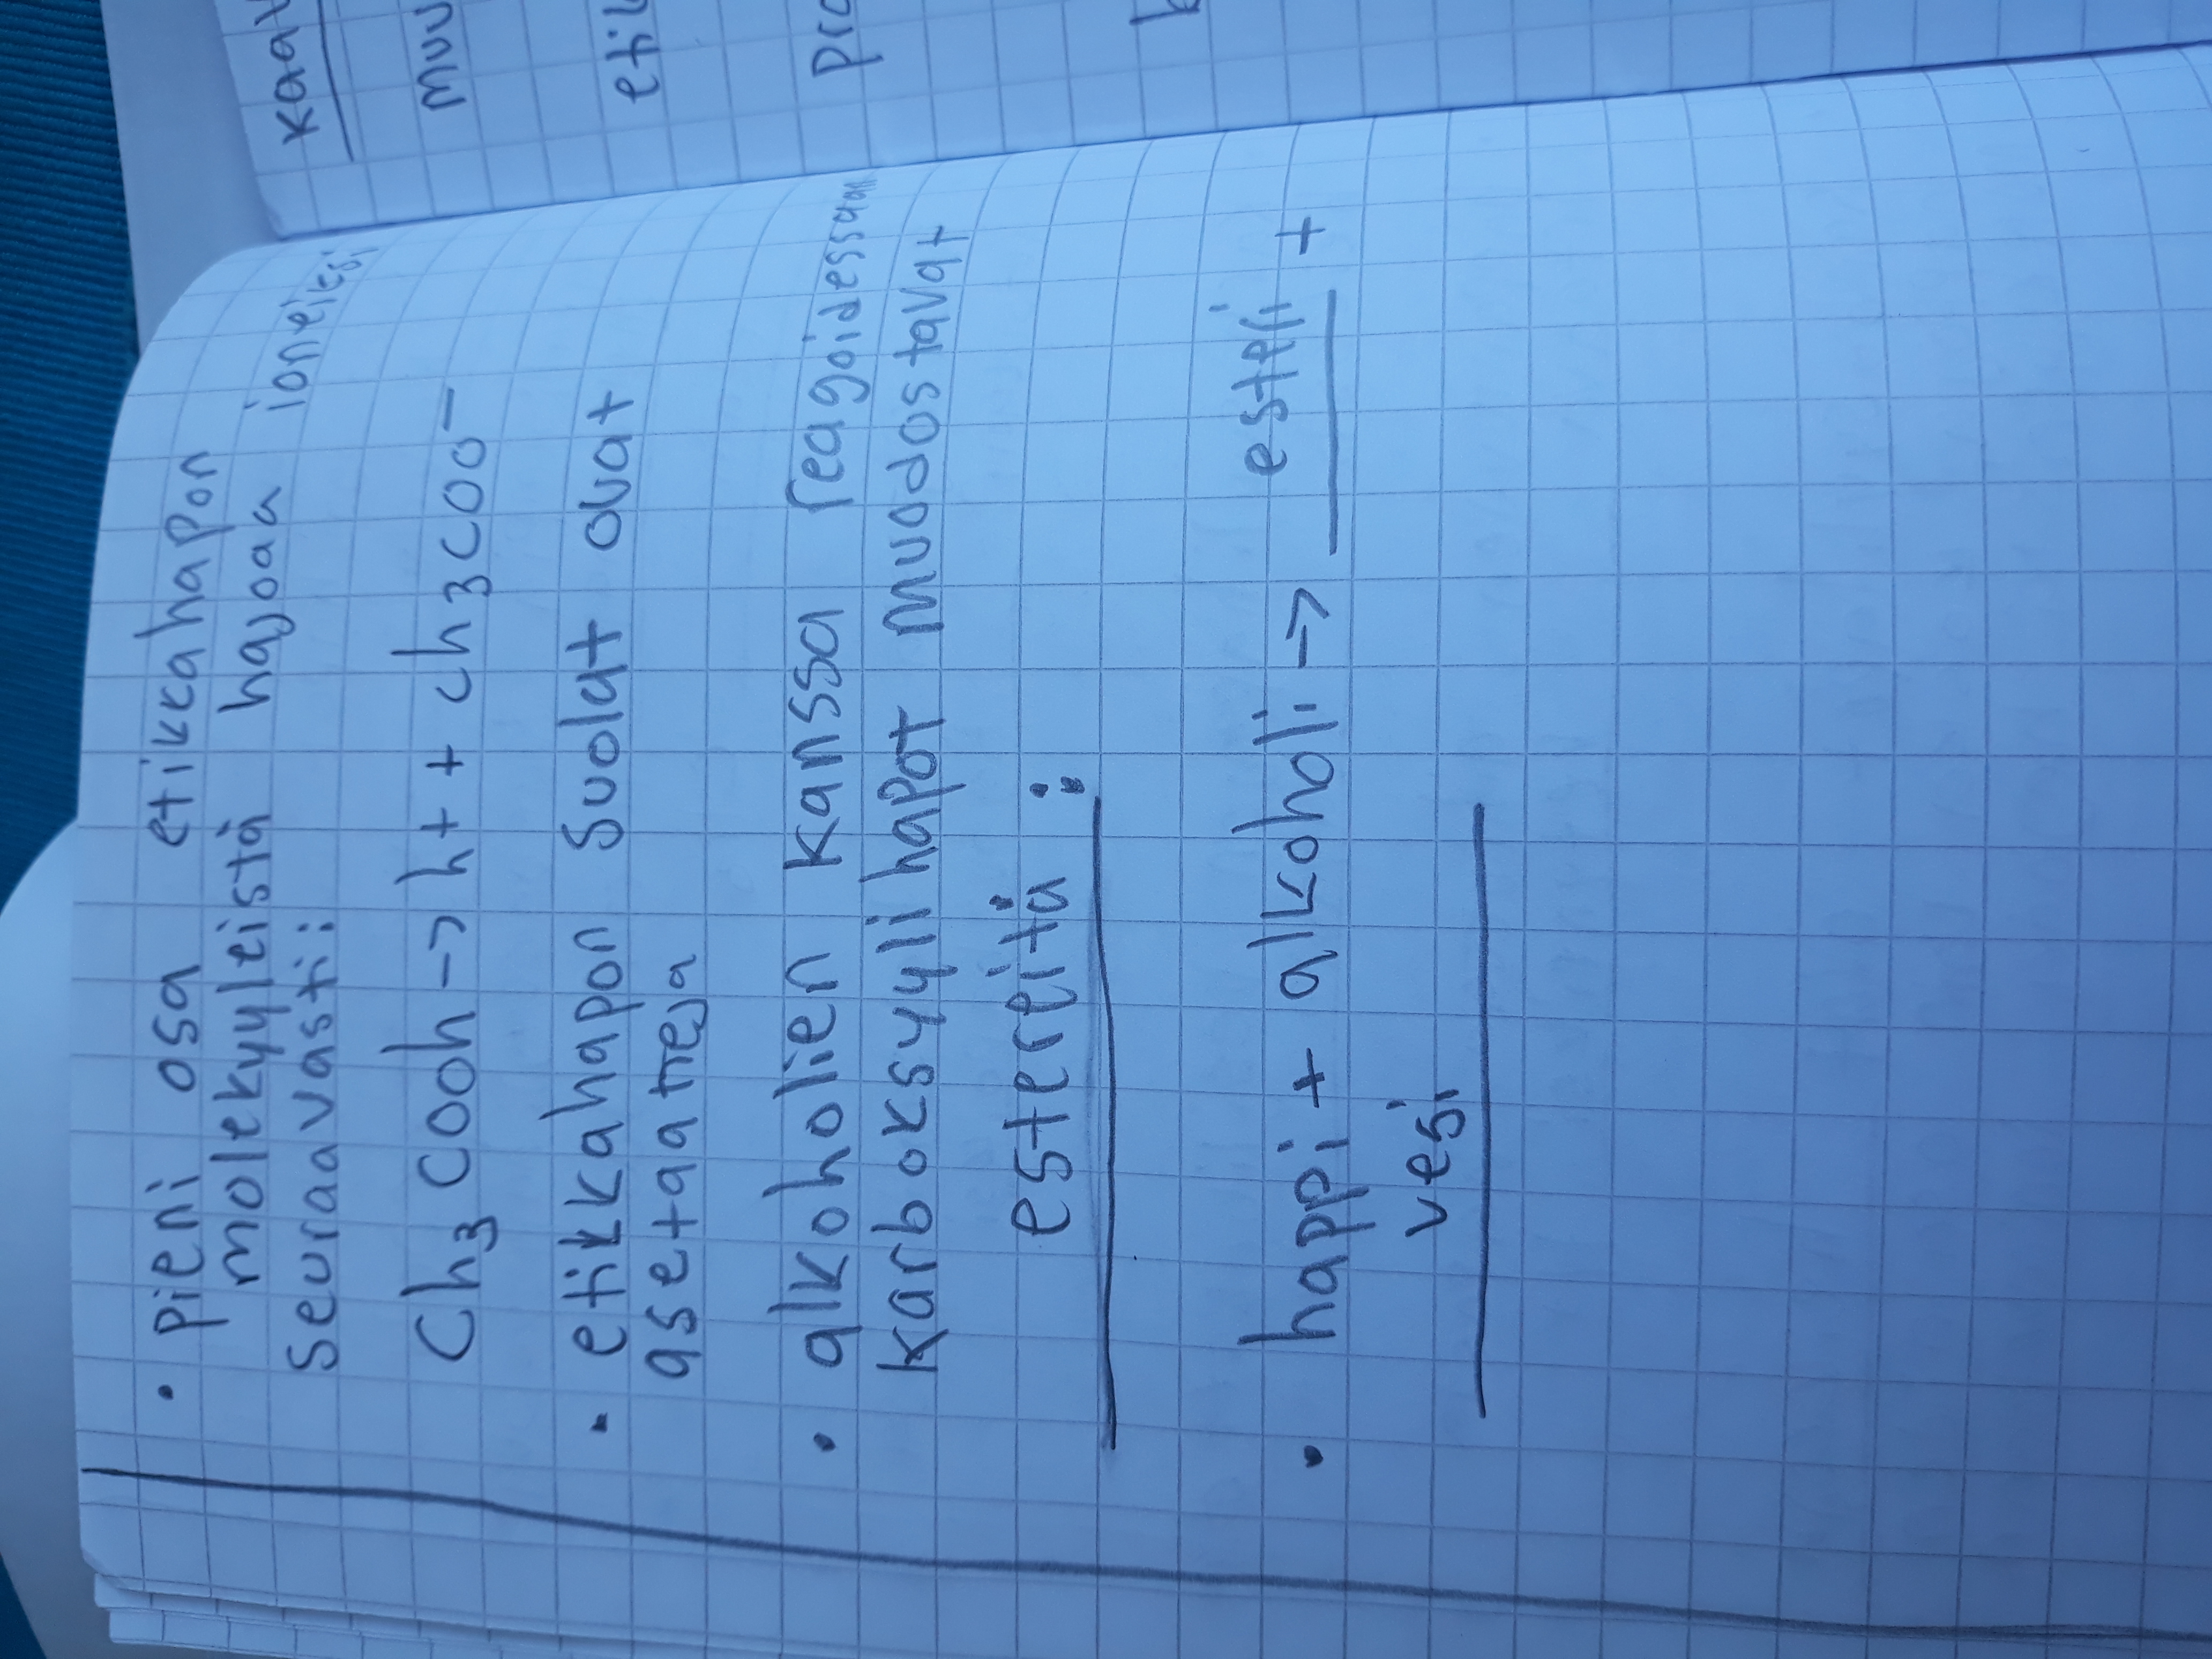 • pieni osa etikkahapon
molekyyleistä hajoaa ioneiksi
seuraavasti:
Ch3 COOh -> h+ + ch3COO-
• etikkahapon suolat ovat
asetaatteja
• alkoholien kanssa reagoidessaan
karboksyylihapot muodostavat
estereitä :
• happi + alkoholi -> esteri +
vesi
muu
pro